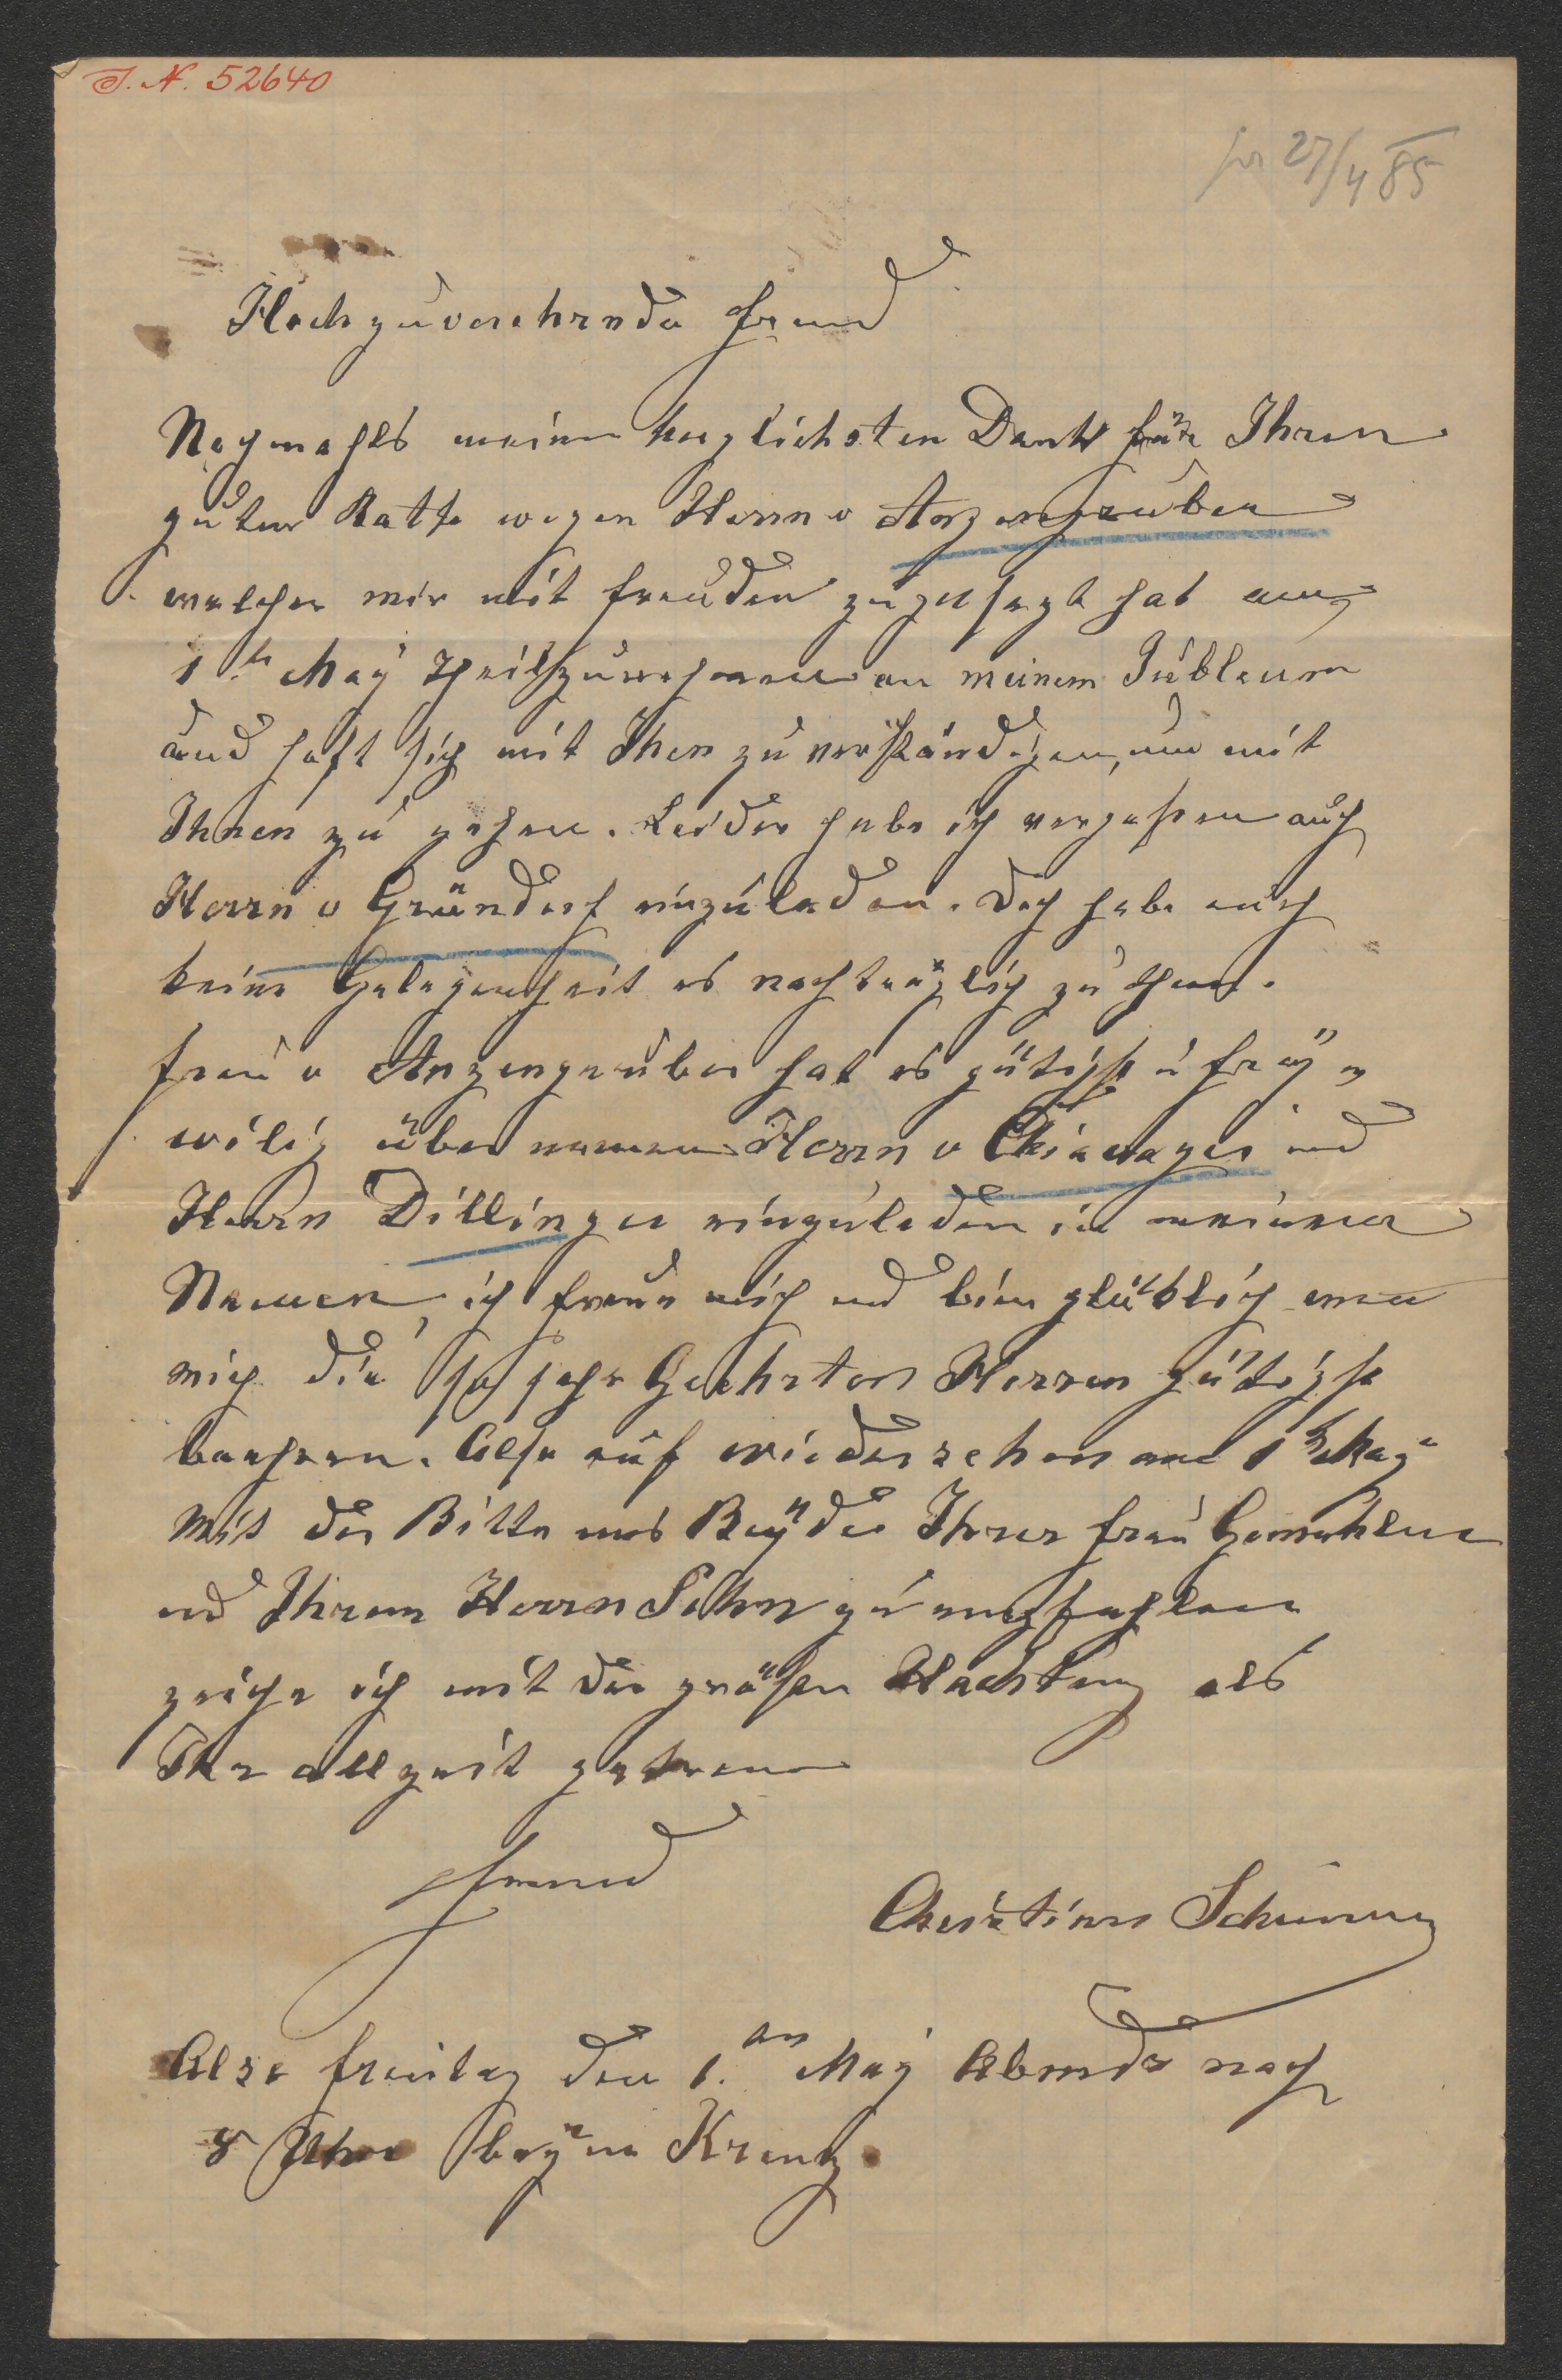 I. N. 52640
27/4 85
Hochzuverehrender Freund
Nochmahls meinen herzlichsten Dank für Ihren
guten Rath wegen Herrn v Anzengruber
welcher mir mit Freuden zugesagt hat am
1ten May theilzunehmen an meinem Jubleum
und hoft sich mit Ihen zu verständigen, um mit
Ihnen zu gehen. Leider habe ich vergessen auch
Herrn v Gründorf einzuladen. Doch habe auch
keine Gelegenheit es nachträglich zu thun.
Frau v Anzengruber hat es gütigst u frey
wilig übernomen Herrn v Chiavacci und
Herrn Dillinger einzuladen in meinem
Namen, ich freue mich und bin glüklich wen
mich die so sehr Geehrten Herren gütigst
beehren. Also auf wiedersehen am 1ten May
Mit der Bitte uns Beyde Ihrer Frau Gemahlin
und Ihrem Herrn Sohn zu empfehlen
zeiche ich mit der grösten Hachtung als
Ihr allzeit getreuer
Freund
Christian Schimmy
Also Freitag den 1.ten May Abends nach
8 Uhr beym Kreutz